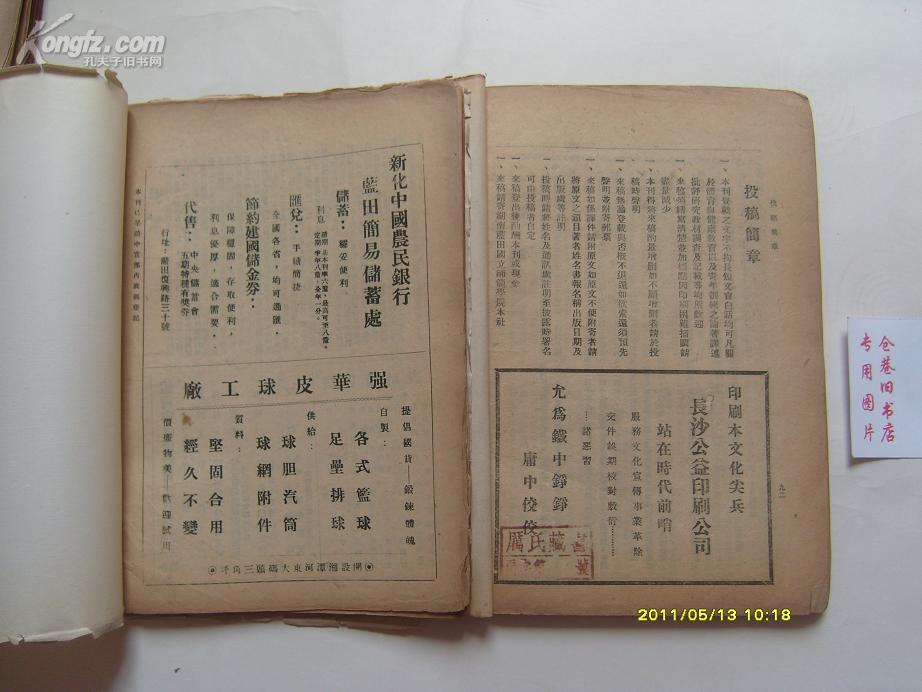 Kongfz.com
孔夫子旧书网
投稿簡章
九二
投稿簡章
一、本刊登載之文字不拘長短文言白話均可凡關
於體育與健康教育以及青年訓練之論著譯述
批評研究教材調查及記載等均所歡迎
來稿須繕寫清楚並加標點因印刷困難插圖請
儘量減少
一、本刊得將來稿酌量增删如不願增删者請於投
稿時聲明
一、來稿無論登載與否概不退還如欲索還須預先
聲明並附寄郵票
一、來稿如係譯件請附原文如原文不便附寄者請
將原文之題目著者姓名書報名稱出版日期及
出版處等註明
一、投稿時請將姓名及通訊處註明至披露時署名
可由投稿者自定
一、來稿登出後酌酬本刊或現金
一、來稿請寄湖南藍田國立師範學院本社
印刷本文化尖兵
長沙公益印刷公司
站在時代前哨
服務文化宣傳事業革除
交件誤期校對敷衍………
……諸惡習
允為鐵中錚錚
庸中佼佼
厲氏藏書
新化中國農民銀行
藍田簡易儲蓄處
儲蓄：穩妥便利
匯兌：手續簡捷
全國各省，均可通匯，
節約建國儲金券：
保障穩固，存取便利，
利息優厚，適合需要。
代售：中央儲蓄會
五期特種有獎券
行址：藍田復興路三十號
强華皮球工廠
提倡國貨—鍛鍊體魄
自製：
各式籃球
足壘排球
供給：
球胆汽筒
球網附件
質料：
堅固合用
經久不變
價廉物美—歡迎試用
開設湘潭河東大碼頭三角坪
仓巷旧书店
专用图片
2011/05/13 10:18